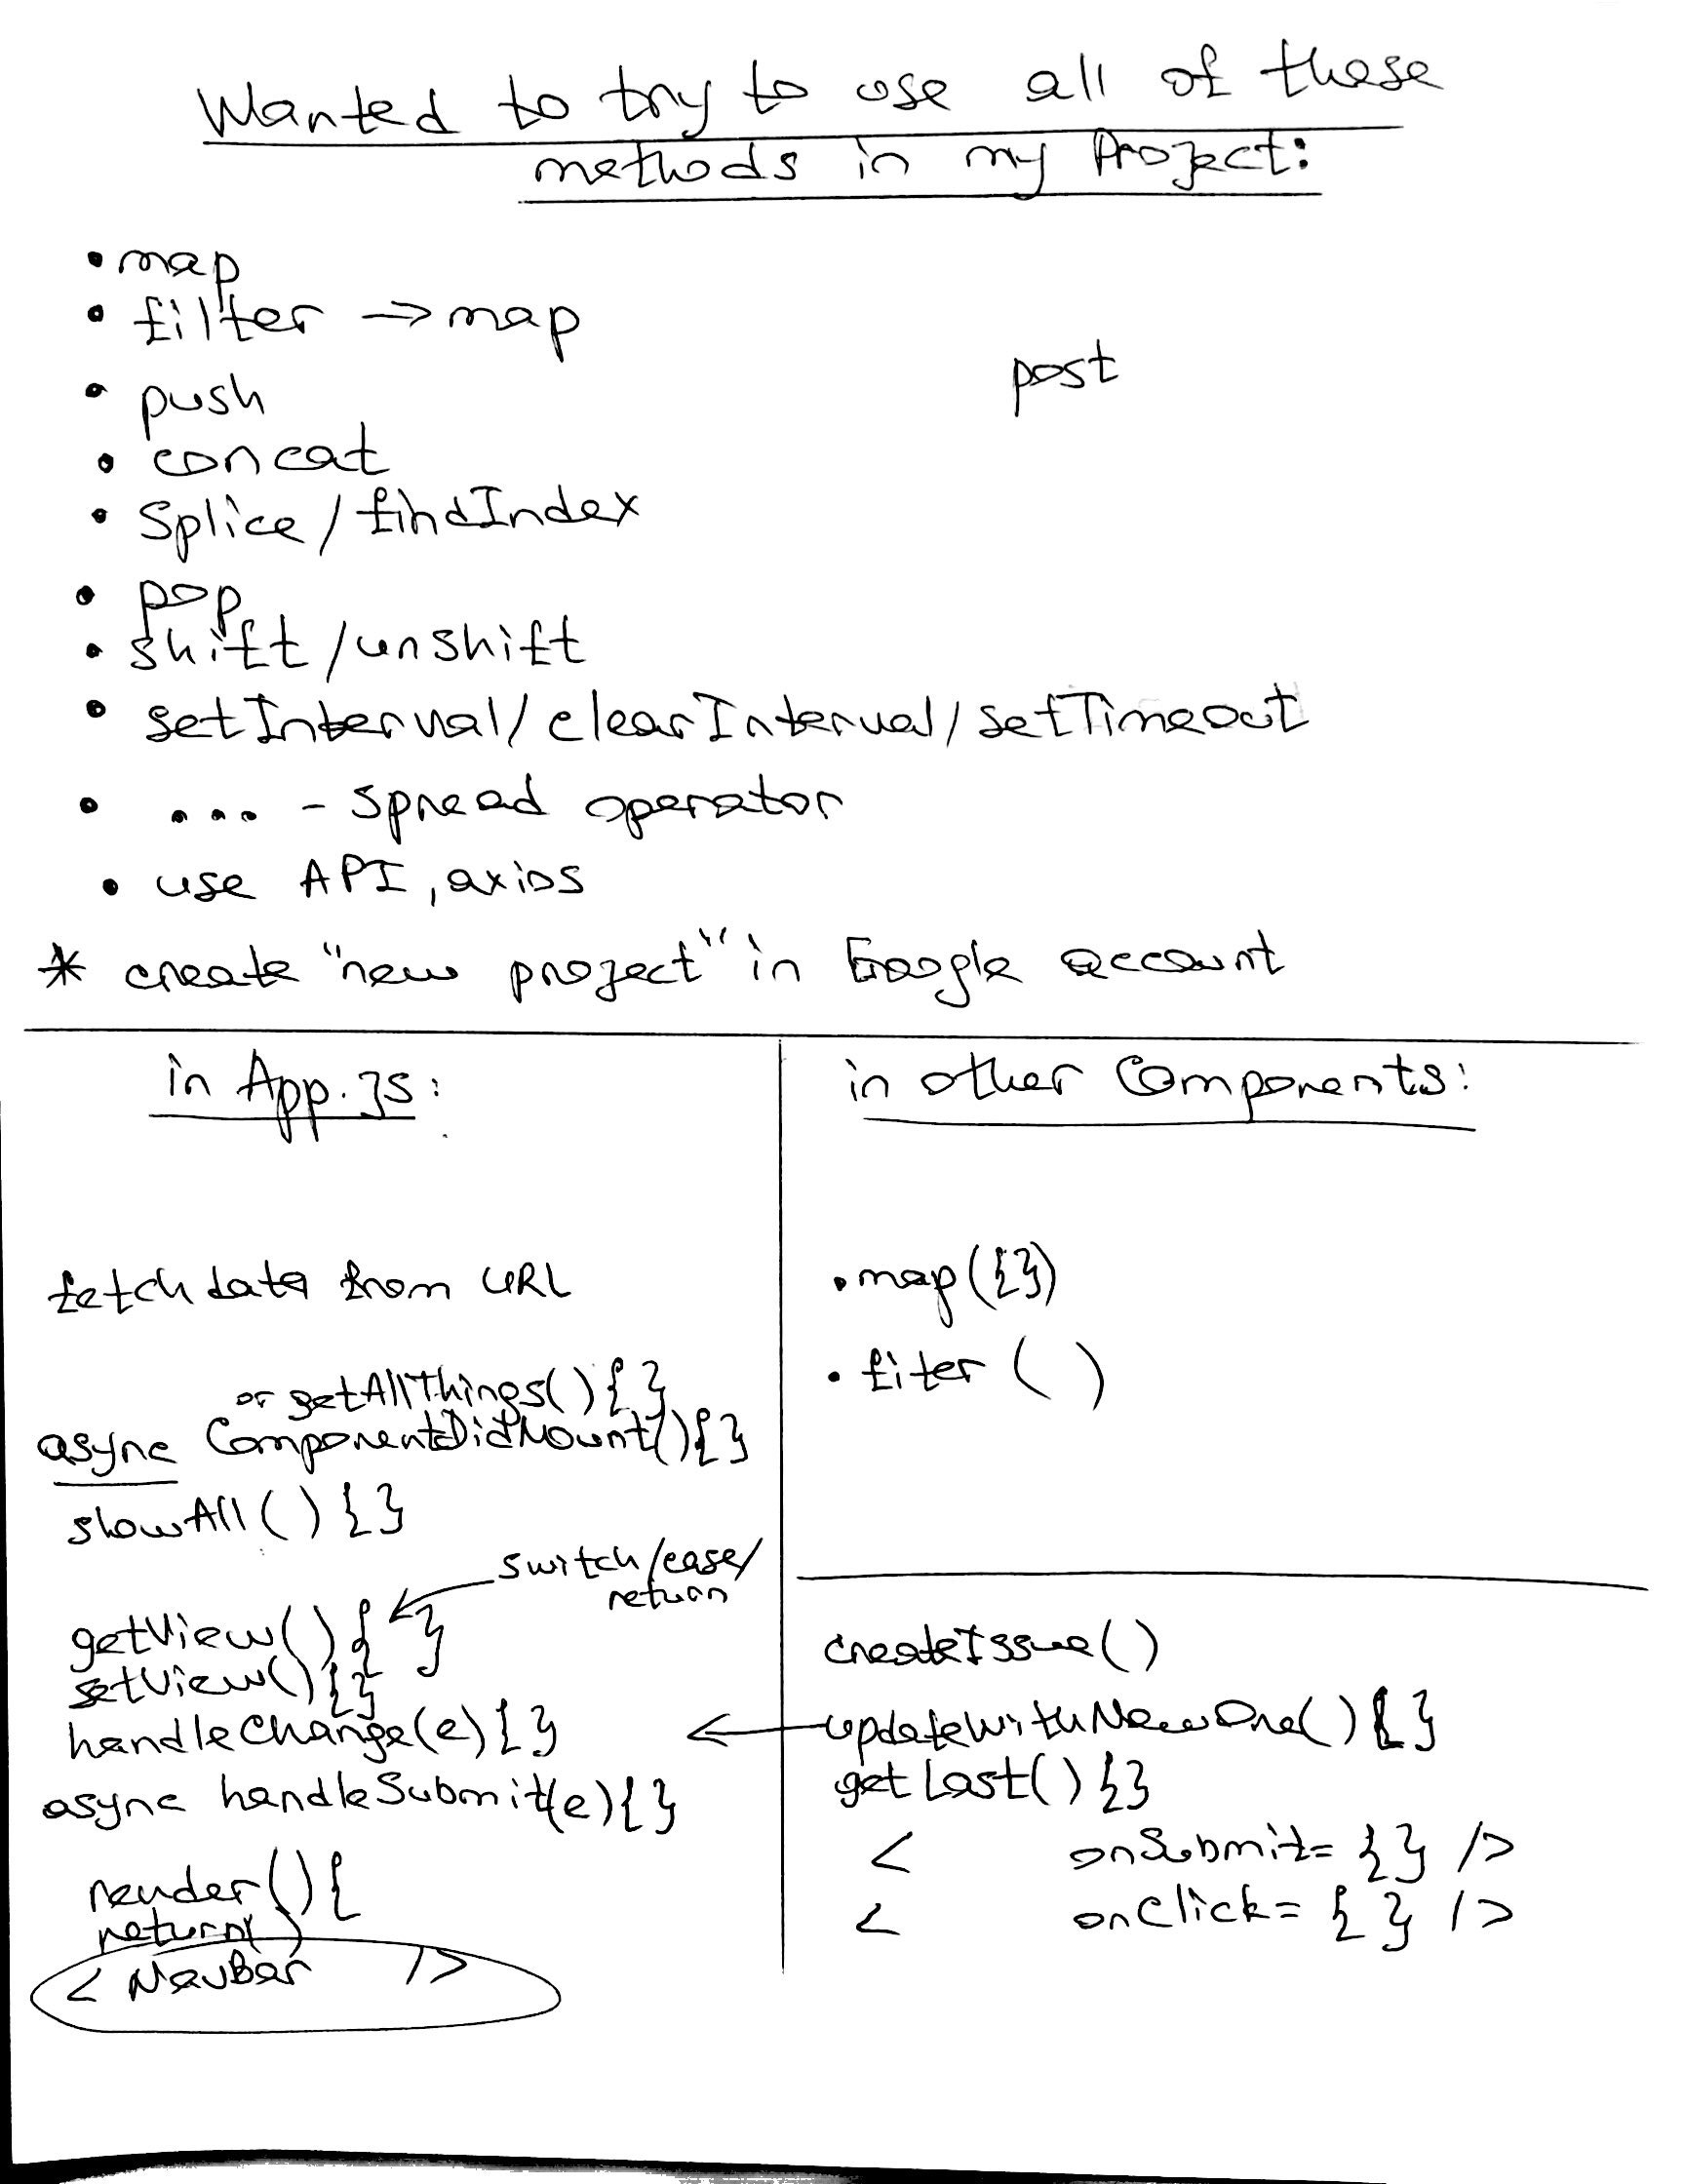 Wanted to try to use all of these
methods in my Project:
• map
• filter → map
post
• push
• concat
• Splice/findIndex
• pop
• shift/unshift
• setInterval/clearInterval/setTimeout
• ... - spread operator
• use API, axios
* create "new project" in Google account
in App.js:
fetch data from URL
or getAllThings(){}
async ComponentDidMount(){}
showAll(){}
switch/case/
return
getView(){ }
setView(){}
handleChange(e){}
async handleSubmit(e){}
render(){
return()
< NavBar />
in other Components:
• map({})
• fiter ( )
createIssue()
← updateWithNewOne(){}
getLast(){}
< onSubmit= {} />
< onClick= { } />